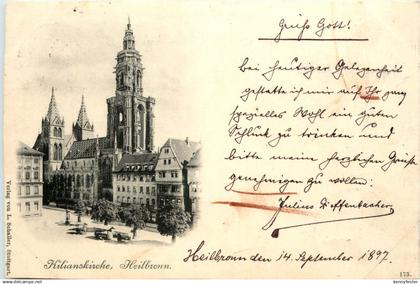 Grüß Gott!
Bei heutiger Gelegenheit
gestatte ich mir auf Ihr ganz
spezielles Wohl ein guten
Schluck zu trinken und
bitte meine herzlichen Grüße
genehmigen zu wollen:
Julius Dieffenbacher
Heilbronn den 14. September 1897.
Kilianskirche, Heilbronn.
Verlag von L. Schaller, Stuttgart.
173.